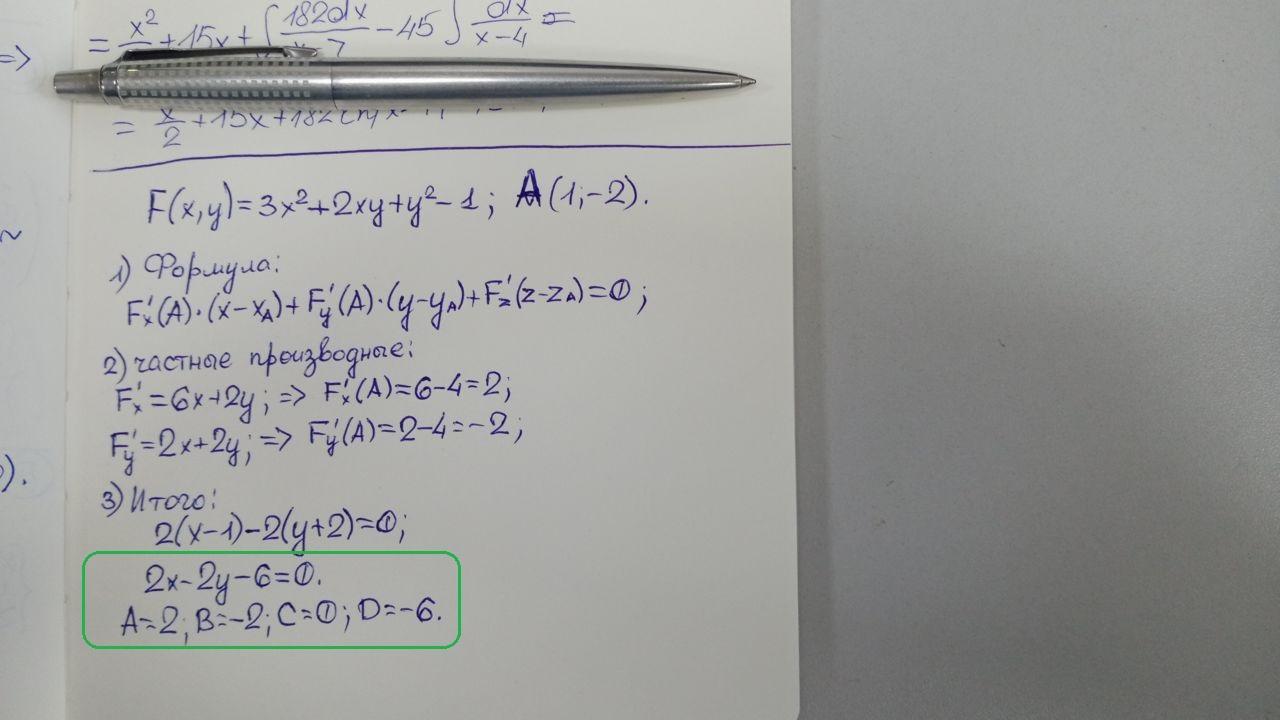 =>
= x²/ +15x+∫182dx/ 7 -45∫dx/x-4 =
= x/2 +15x+182
F(x,y)=3x²+2xy+y²-1; A(1;-2).
~
1) Формула:
F'x(A)·(x-xA)+F'y(A)·(y-yA)+F'z(z-zA)=0;
2) частные производные:
F'x=6x+2y; => F'x(A)=6-4=2;
F'y=2x+2y; => F'y(A)=2-4=-2;
).
3) Итого:
2(x-1)-2(y+2)=0;
2x-2y-6=0.
A=2; B=-2; C=0; D=-6.